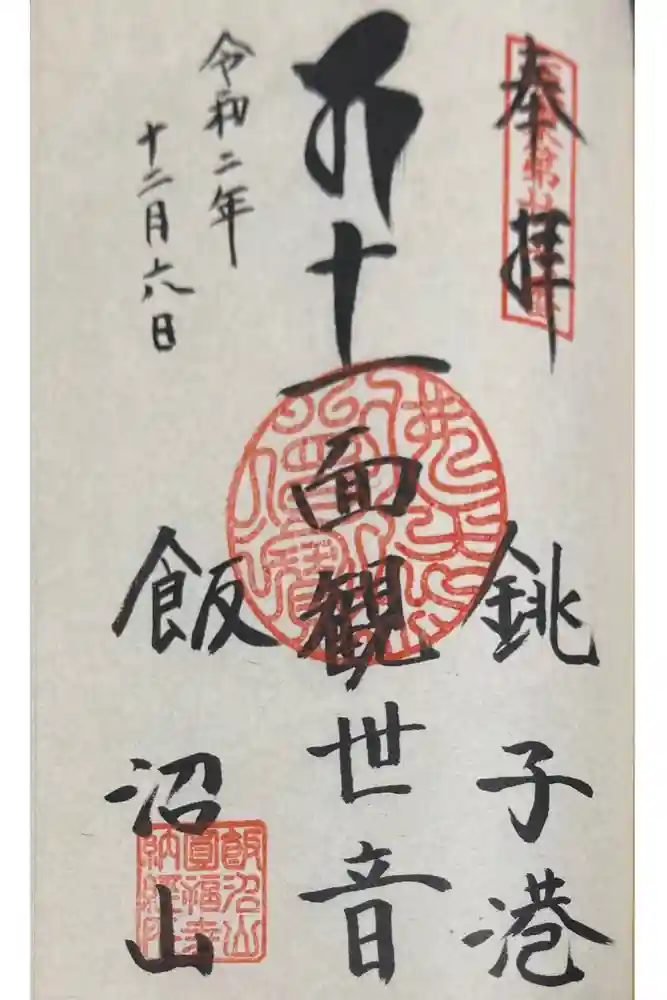 奉拝
銚子港
十一面観世音
飯沼山
令和二年
十二月六日
飯沼山
圓福寺
納経印